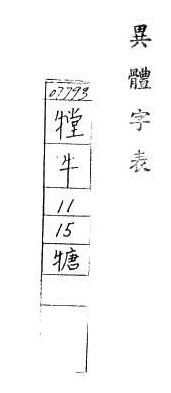 異體字表
07793
牛
11
15